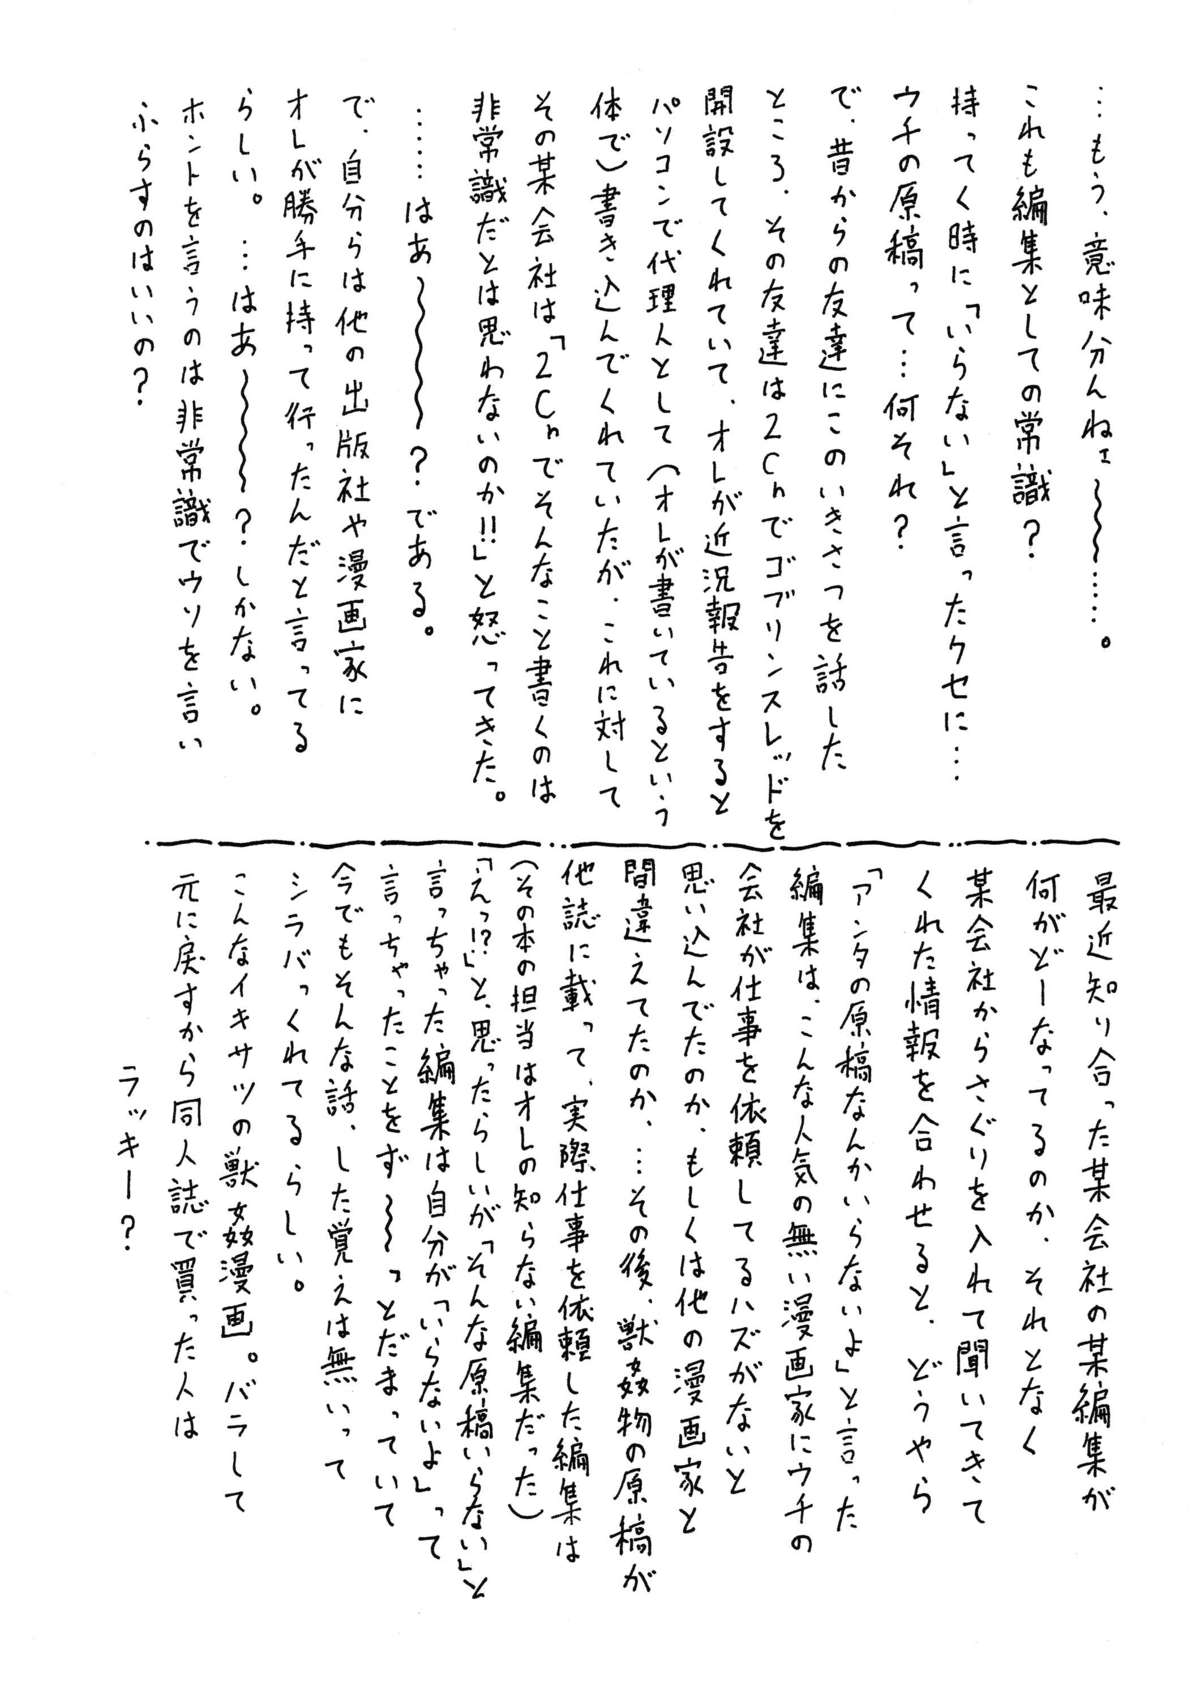 …もう、意味分んねェ〜〜〜……。
これも編集としての常識？
持ってく時に「いらない」と言ったクセに…
ウチの原稿って…何それ？
で、昔からの友達にこのいきさつを話した
ところ、その友達は２Ｃｈでゴブリンスレッドを
開設してくれていて、オレが近況報告をすると
パソコンで代理人として（オレが書いているという
体で）書き込んでくれていたが、これに対して
その某会社は「２Ｃｈでそんなこと書くのは
非常識だとは思わないのか!!」と怒ってきた。
……はあ〜〜〜〜？である。
で、自分らは他の出版社や漫画家に
オレが勝手に持って行ったんだと言ってる
らしい。…はあ〜〜〜〜？しかない。
ホントを言うのは非常識でウソを言い
ふらすのはいいの？
最近知り合った某会社の某編集が
何がどーなってるのか、それとなく
某会社からさぐりを入れて聞いてきて
くれた情報を合わせると、どうやら
「アンタの原稿なんかいらないよ」と言った
編集は、こんな人気の無い漫画家にウチの
会社が仕事を依頼してるハズがないと
思い込んでたのか、もしくは他の漫画家と
間違えてたのか、…その後、獣姦物の原稿が
他誌に載って、実際仕事を依頼した編集は
（その本の担当はオレの知らない編集だった）
「えっ!?」と、思ったらしいが「そんな原稿いらない」と
言っちゃった編集は自分が「いらないよ」って
言っちゃったことをず〜〜っとだまっていて
今でもそんな話、した覚えは無いって
シラバっくれてるらしい。
こんなイキサツの獣姦漫画。バラして
元に戻すから同人誌で買った人は
ラッキー？